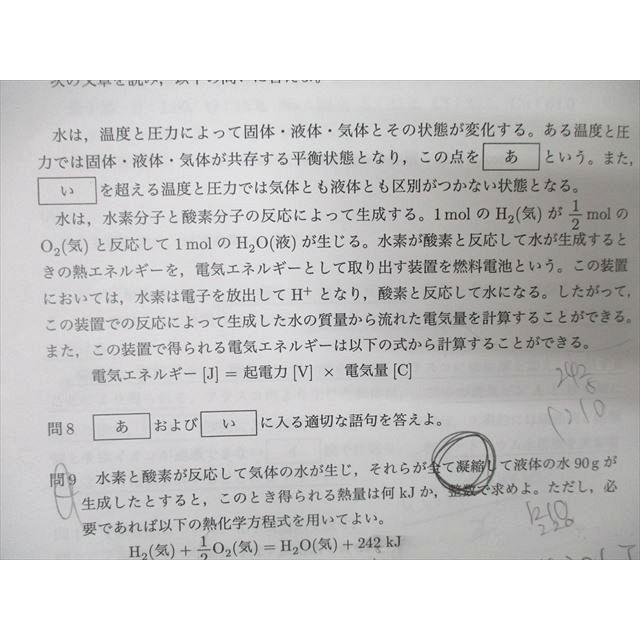 次の文章を読み,以下の問いに答えよ。
水は,温度と圧力によって固体・液体・気体とその状態が変化する。ある温度と圧
力では固体・液体・気体が共存する平衡状態となり,この点を あ という。また,
い を超える温度と圧力では気体とも液体とも区別がつかない状態となる。
水は,水素分子と酸素分子の反応によって生成する。1 mol の H₂(気) が 1/2 mol の
O₂(気) と反応して 1 mol の H₂O(液) が生じる。水素が酸素と反応して水が生成すると
きの熱エネルギーを,電気エネルギーとして取り出す装置を燃料電池という。この装置
においては,水素は電子を放出して H⁺ となり,酸素と反応して水になる。したがって,
この装置での反応によって生成した水の質量から流れた電気量を計算することができる。
また,この装置で得られる電気エネルギーは以下の式から計算することができる。
電気エネルギー [J] = 起電力 [V] × 電気量 [C]
242
5
1210
問8 あ および い に入る適切な語句を答えよ。
問9 水素と酸素が反応して気体の水が生じ,それらが全て凝縮して液体の水 90 g が
生成したとすると,このとき得られる熱量は何 kJ か,整数で求めよ。ただし,必
要であれば以下の熱化学方程式を用いてよい。
1210
228
H₂(気) + 1/2 O₂(気) = H₂O(気) + 242 kJ